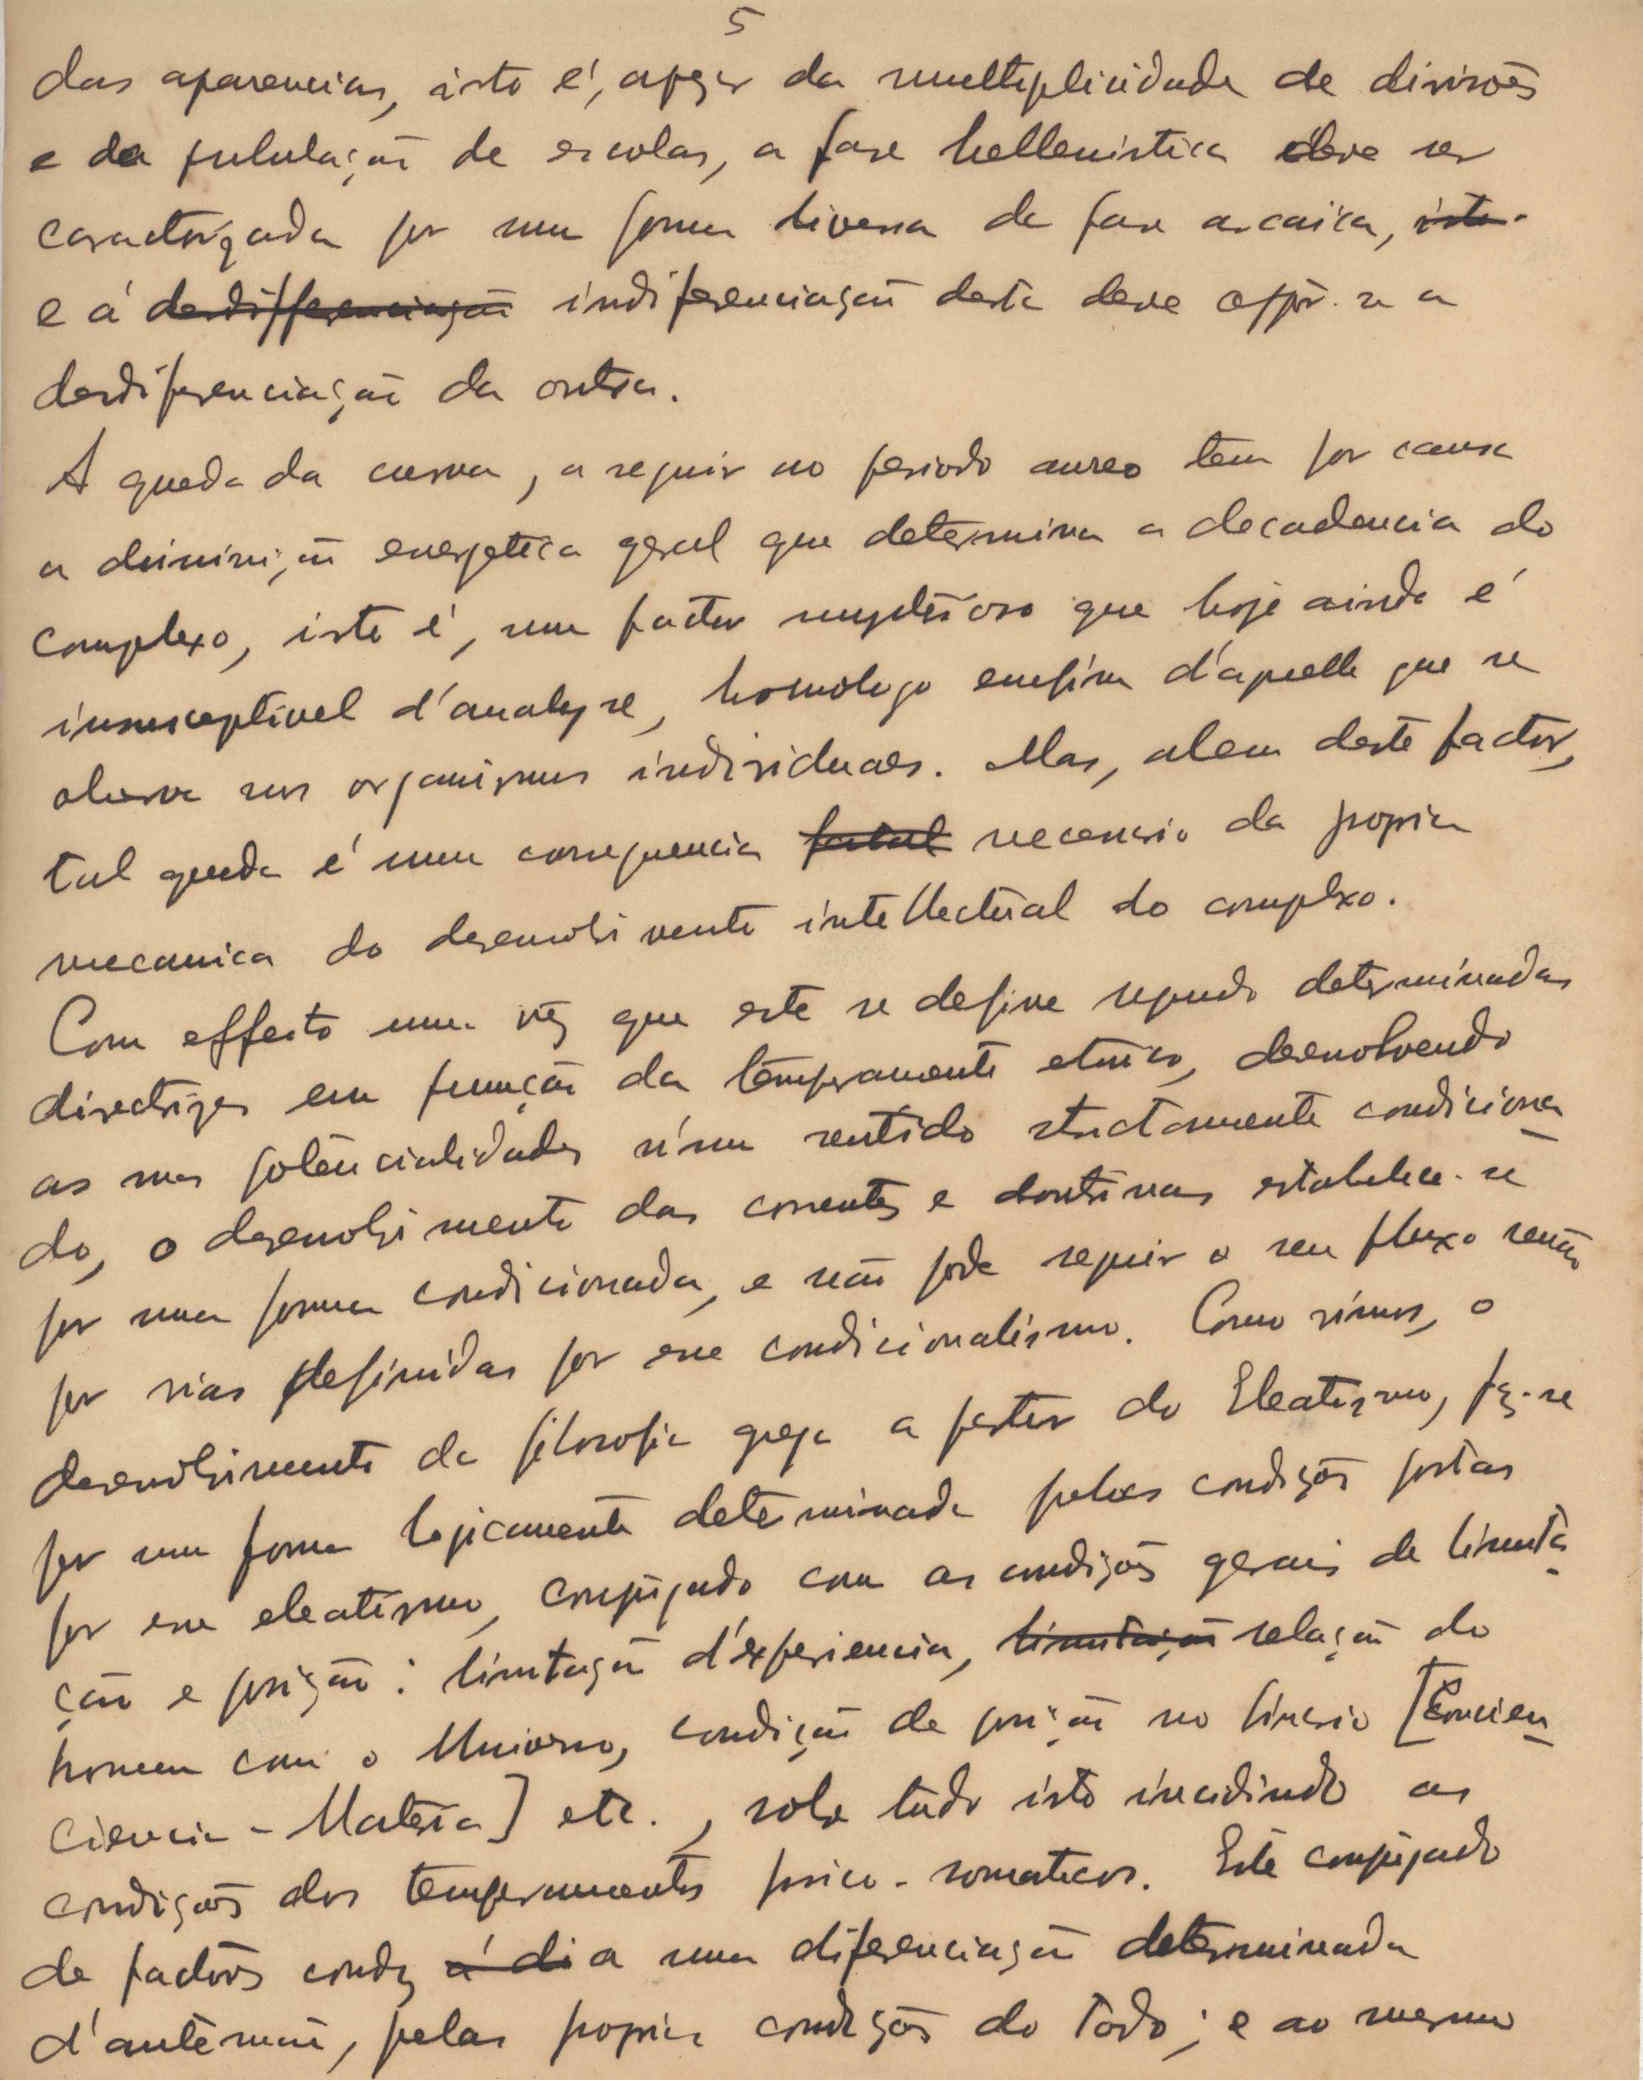 5
das aparencias, isto é, apezar da multiplicidade de divisões
e da pululação de escolas, a fase hellenistica deve ser
caracterizada por uma forma diversa da fase arcaica, isto
e á desdifferenciação indiferenciação desta deve oppôr-se a
desdiferenciação da outra.
A queda da curva, a seguir ao periodo aureo tem por causa
a diminuição energetica geral que determina a decadencia do
complexo, isto é, um factor mysterioso que hoje ainda é
insusceptivel d'analyse, homologo emfim d'aquelle que se
observa nos organismos individuaes. Mas, alem deste factor,
tal queda é uma consequencia fatal necessaria da propria
mecanica do desenvolvimento intellectual do complexo.
Com effeito uma vez que este se define segundo determinadas
directrizes em função da temperamento etnico, desenvolvendo
as suas potencialidades n'um sentido strictamente condiciona
do, o desenvolvimento das correntes e doutrinas estabelece-se
por uma forma condicionada, e não pode seguir o seu fluxo senão
por vias definidas por esse condicionalismo. Como vimos, o
desenvolvimento da filosofia grega a partir do Eleatismo, fez-se
por uma forma logicamente determinada pelas condições postas
por esse eleatismo, conjugado com as condições gerais de limita
ção e posição: limitação d'experiencia, limitação relação do
homem com o Universo, condição de posição no binario [Conscien
ciencia - Materia] etc., sobre tudo isto incidindo as
condições dos temperamentos psico-somaticos. Este conjugado
de factores conduz á di a uma diferenciação determinada
d'antemão, pelas proprias condições do Todo; e ao mesmo